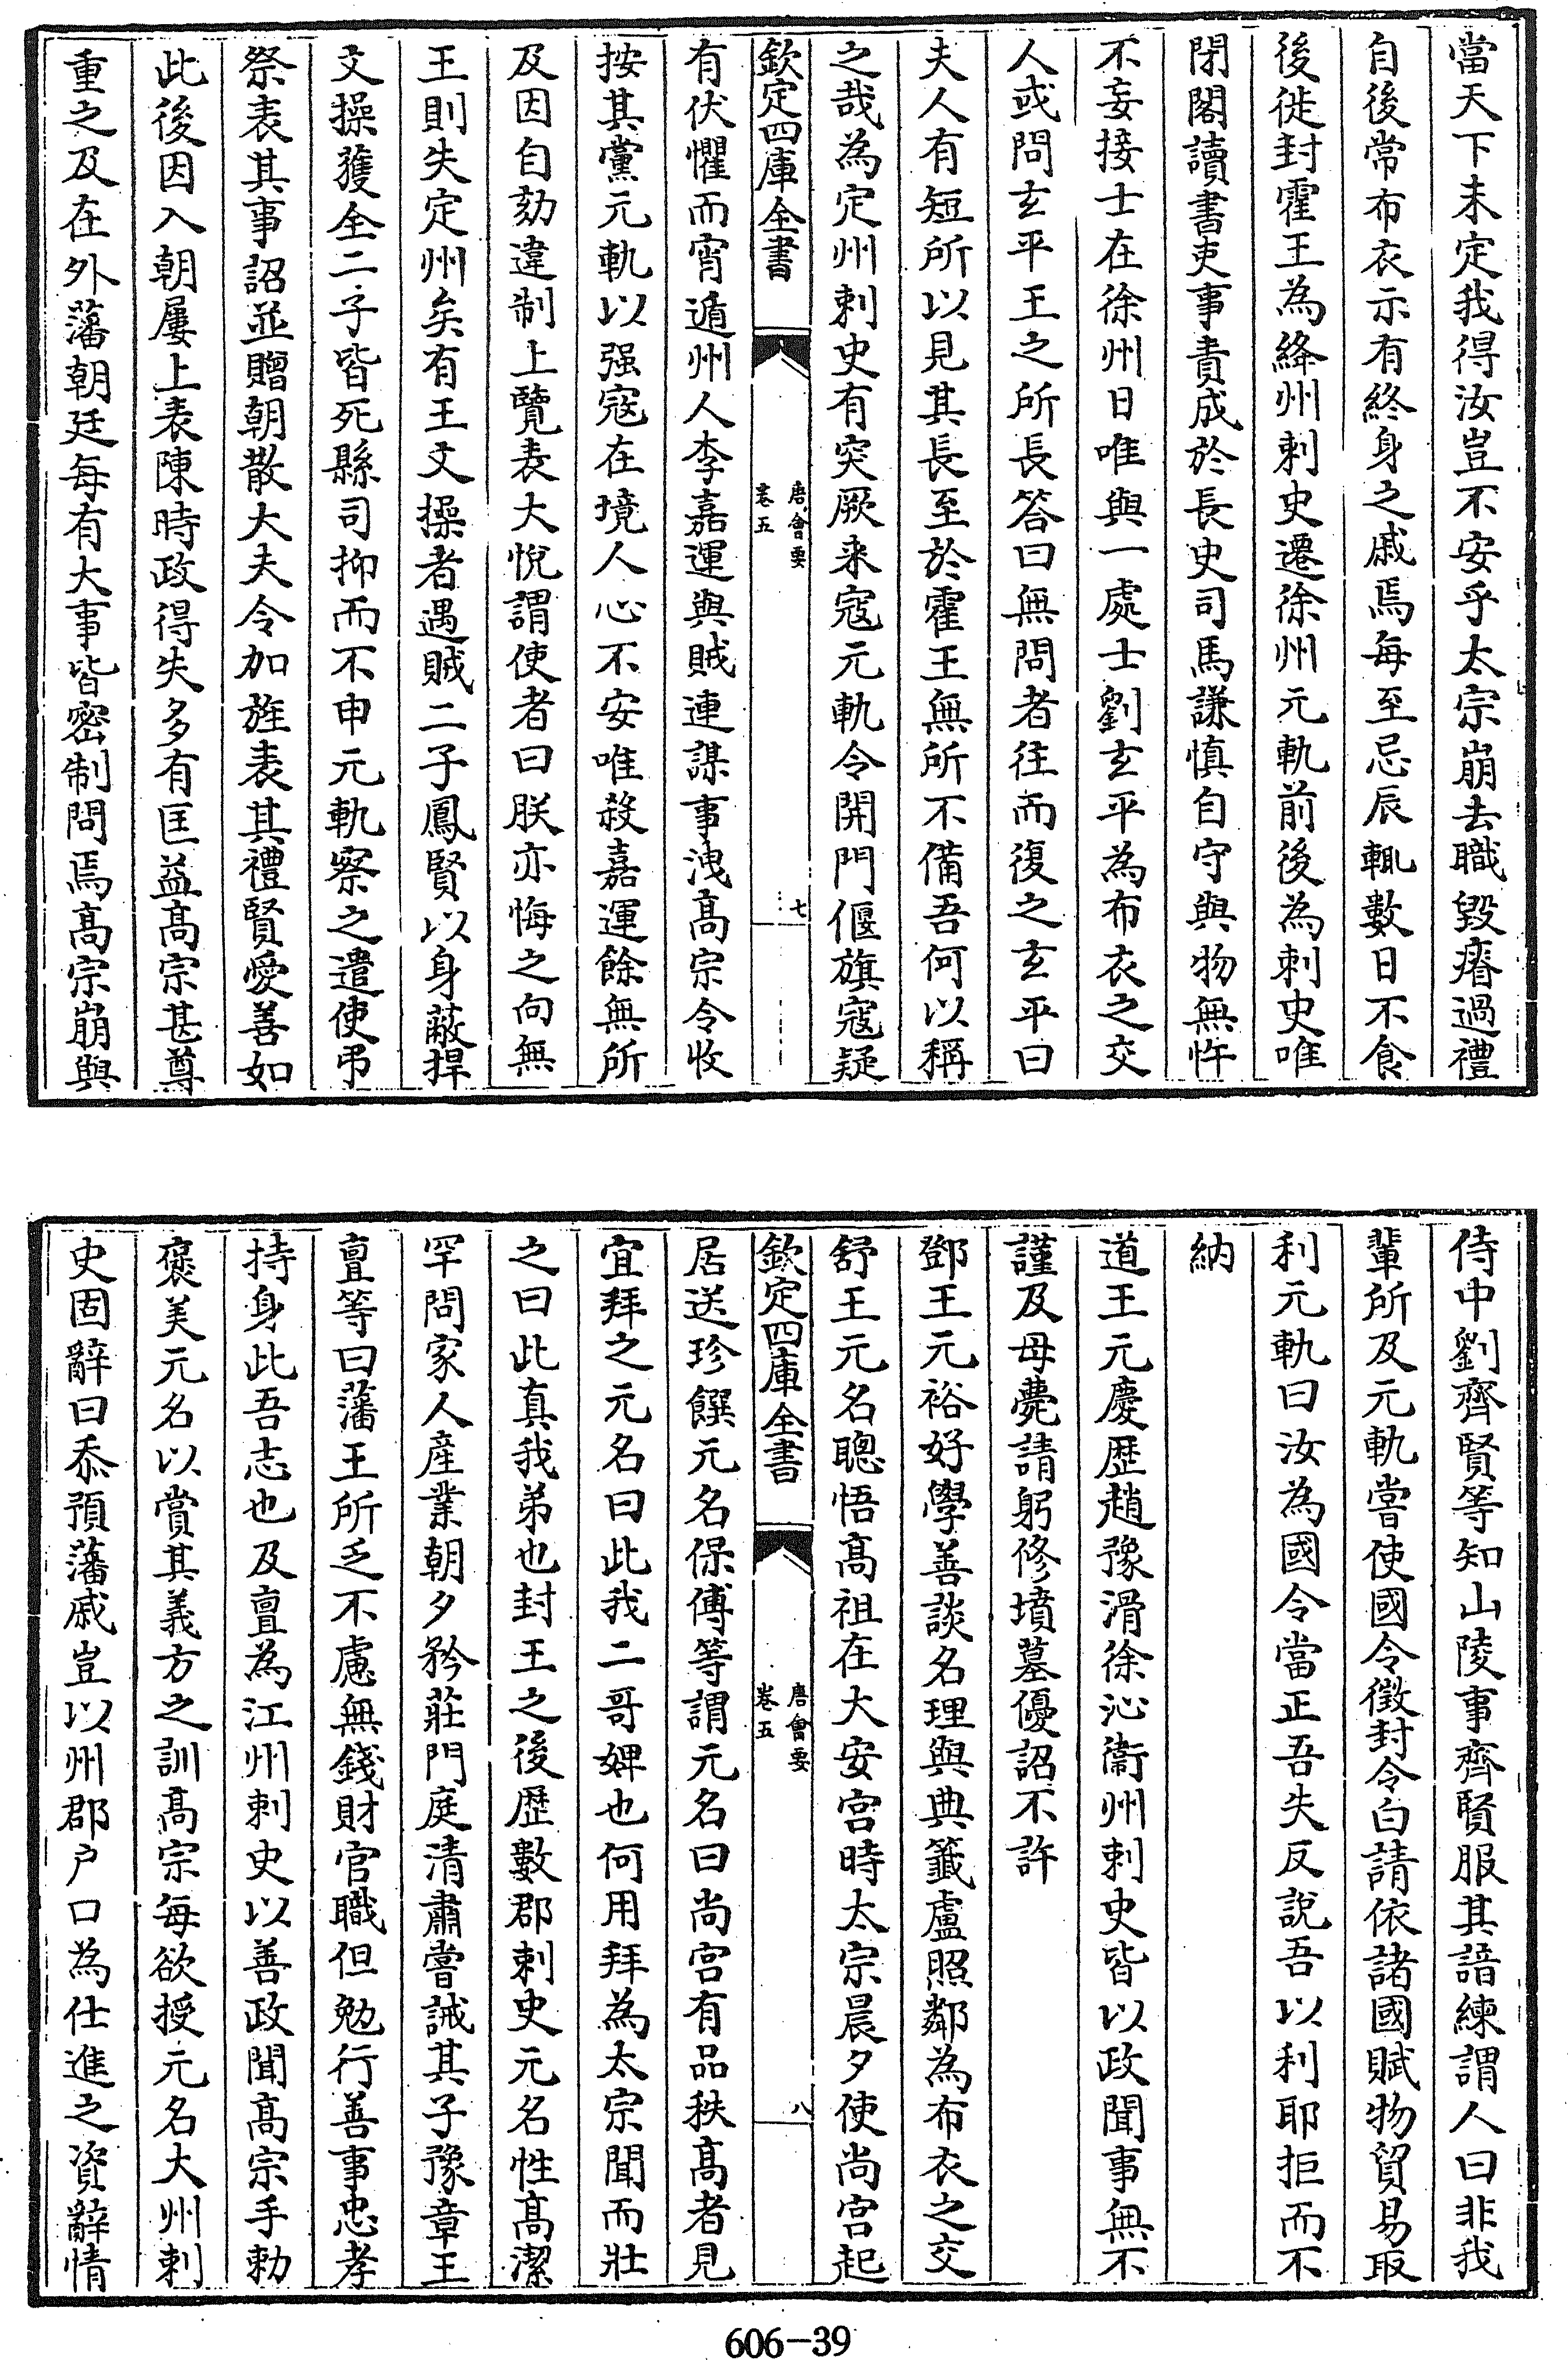 當天下未定我得汝豈不安乎太宗崩去職毀瘠過禮
自後常布衣示有終身之戚焉每至忌辰輒數日不食
後徙封霍王為絳州刺史遷徐州元軌前後為刺史唯
閉閣讀書吏事責成於長史司馬謙慎自守與物無忤
不妄接士在徐州日唯與一處士劉玄平為布衣之交
人或問玄平王之所長答曰無問者往而復之玄平曰
夫人有短所以見其長至於霍王無所不備吾何以稱
之哉為定州刺史有突厥来寇元軌令開門偃旗寇疑
欽定四庫全書
唐會要
卷五
七
有伏懼而宵遁州人李嘉運與賊連謀事洩髙宗令收
按其黨元軌以强寇在境人心不安唯殺嘉運餘無所
及因自劾違制上覽表大悅謂使者曰朕亦悔之向無
王則失定州矣有王文操者遇賊二子鳳賢以身蔽捍
文操獲全二子皆死縣司抑而不申元軌察之遣使弔
祭表其事詔並贈朝散大夫令加旌表其禮賢愛善如
此後因入朝屢上表陳時政得失多有匡益髙宗甚尊
重之及在外藩朝廷每有大事皆密制問焉髙宗崩與
侍中劉齊賢等知山陵事齊賢服其諳練謂人曰非我
輩所及元軌嘗使國令徵封令白請依諸國賦物貿易取
利元軌曰汝為國令當正吾失反說吾以利耶拒而不
納
道王元慶歴趙豫滑徐沁衞州刺史皆以政聞事無不
謹及母薨請躬修墳墓優詔不許
鄧王元裕好學善談名理與典籤盧照鄰為布衣之交
舒王元名聰悟髙祖在大安宫時太宗晨夕使尚宫起
欽定四庫全書
唐會要
卷五
八
居送珍饌元名保傅等謂元名曰尚宫有品秩髙者見
宜拜之元名曰此我二哥婢也何用拜為太宗聞而壯
之曰此真我弟也封王之後歴數郡刺史元名性髙潔
罕問家人産業朝夕矜莊門庭清肅嘗誡其子豫章王
亶等曰藩王所乏不慮無錢財官職但勉行善事忠孝
持身此吾志也及亶為江州刺史以善政聞髙宗手勅
褒美元名以賞其義方之訓髙宗每欲授元名大州刺
史固辭曰忝預藩戚豈以州郡户口為仕進之資辭情
606-39